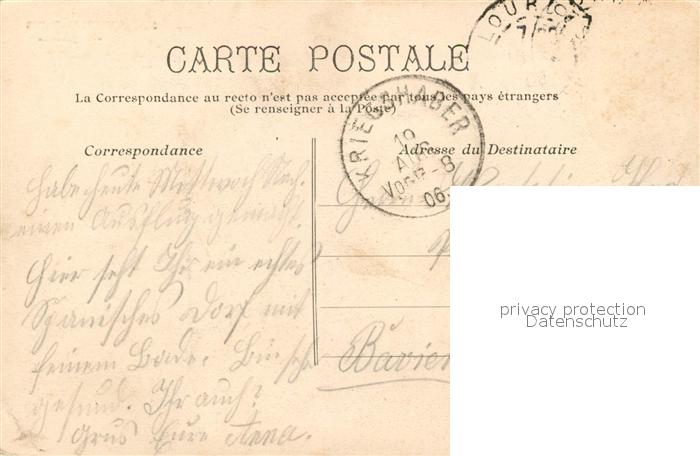 LOURDES
CARTE POSTALE
La Correspondance au recto n'est pas acceptée par tous les pays étrangers
(Se renseigner à la Poste)
KRIEGSHABER
19
AUG
VORM 8
06
Correspondance
Adresse du Destinataire
Habe heute Mittwoch Nach.
einen Ausflug gemacht.
Hier seht Ihr ein echtes
Spanisches Dorf mit
seinem Bade. Bin sehr
gesund. Ihr auch?
Grus Eure Anna.
privacy protection
Datenschutz